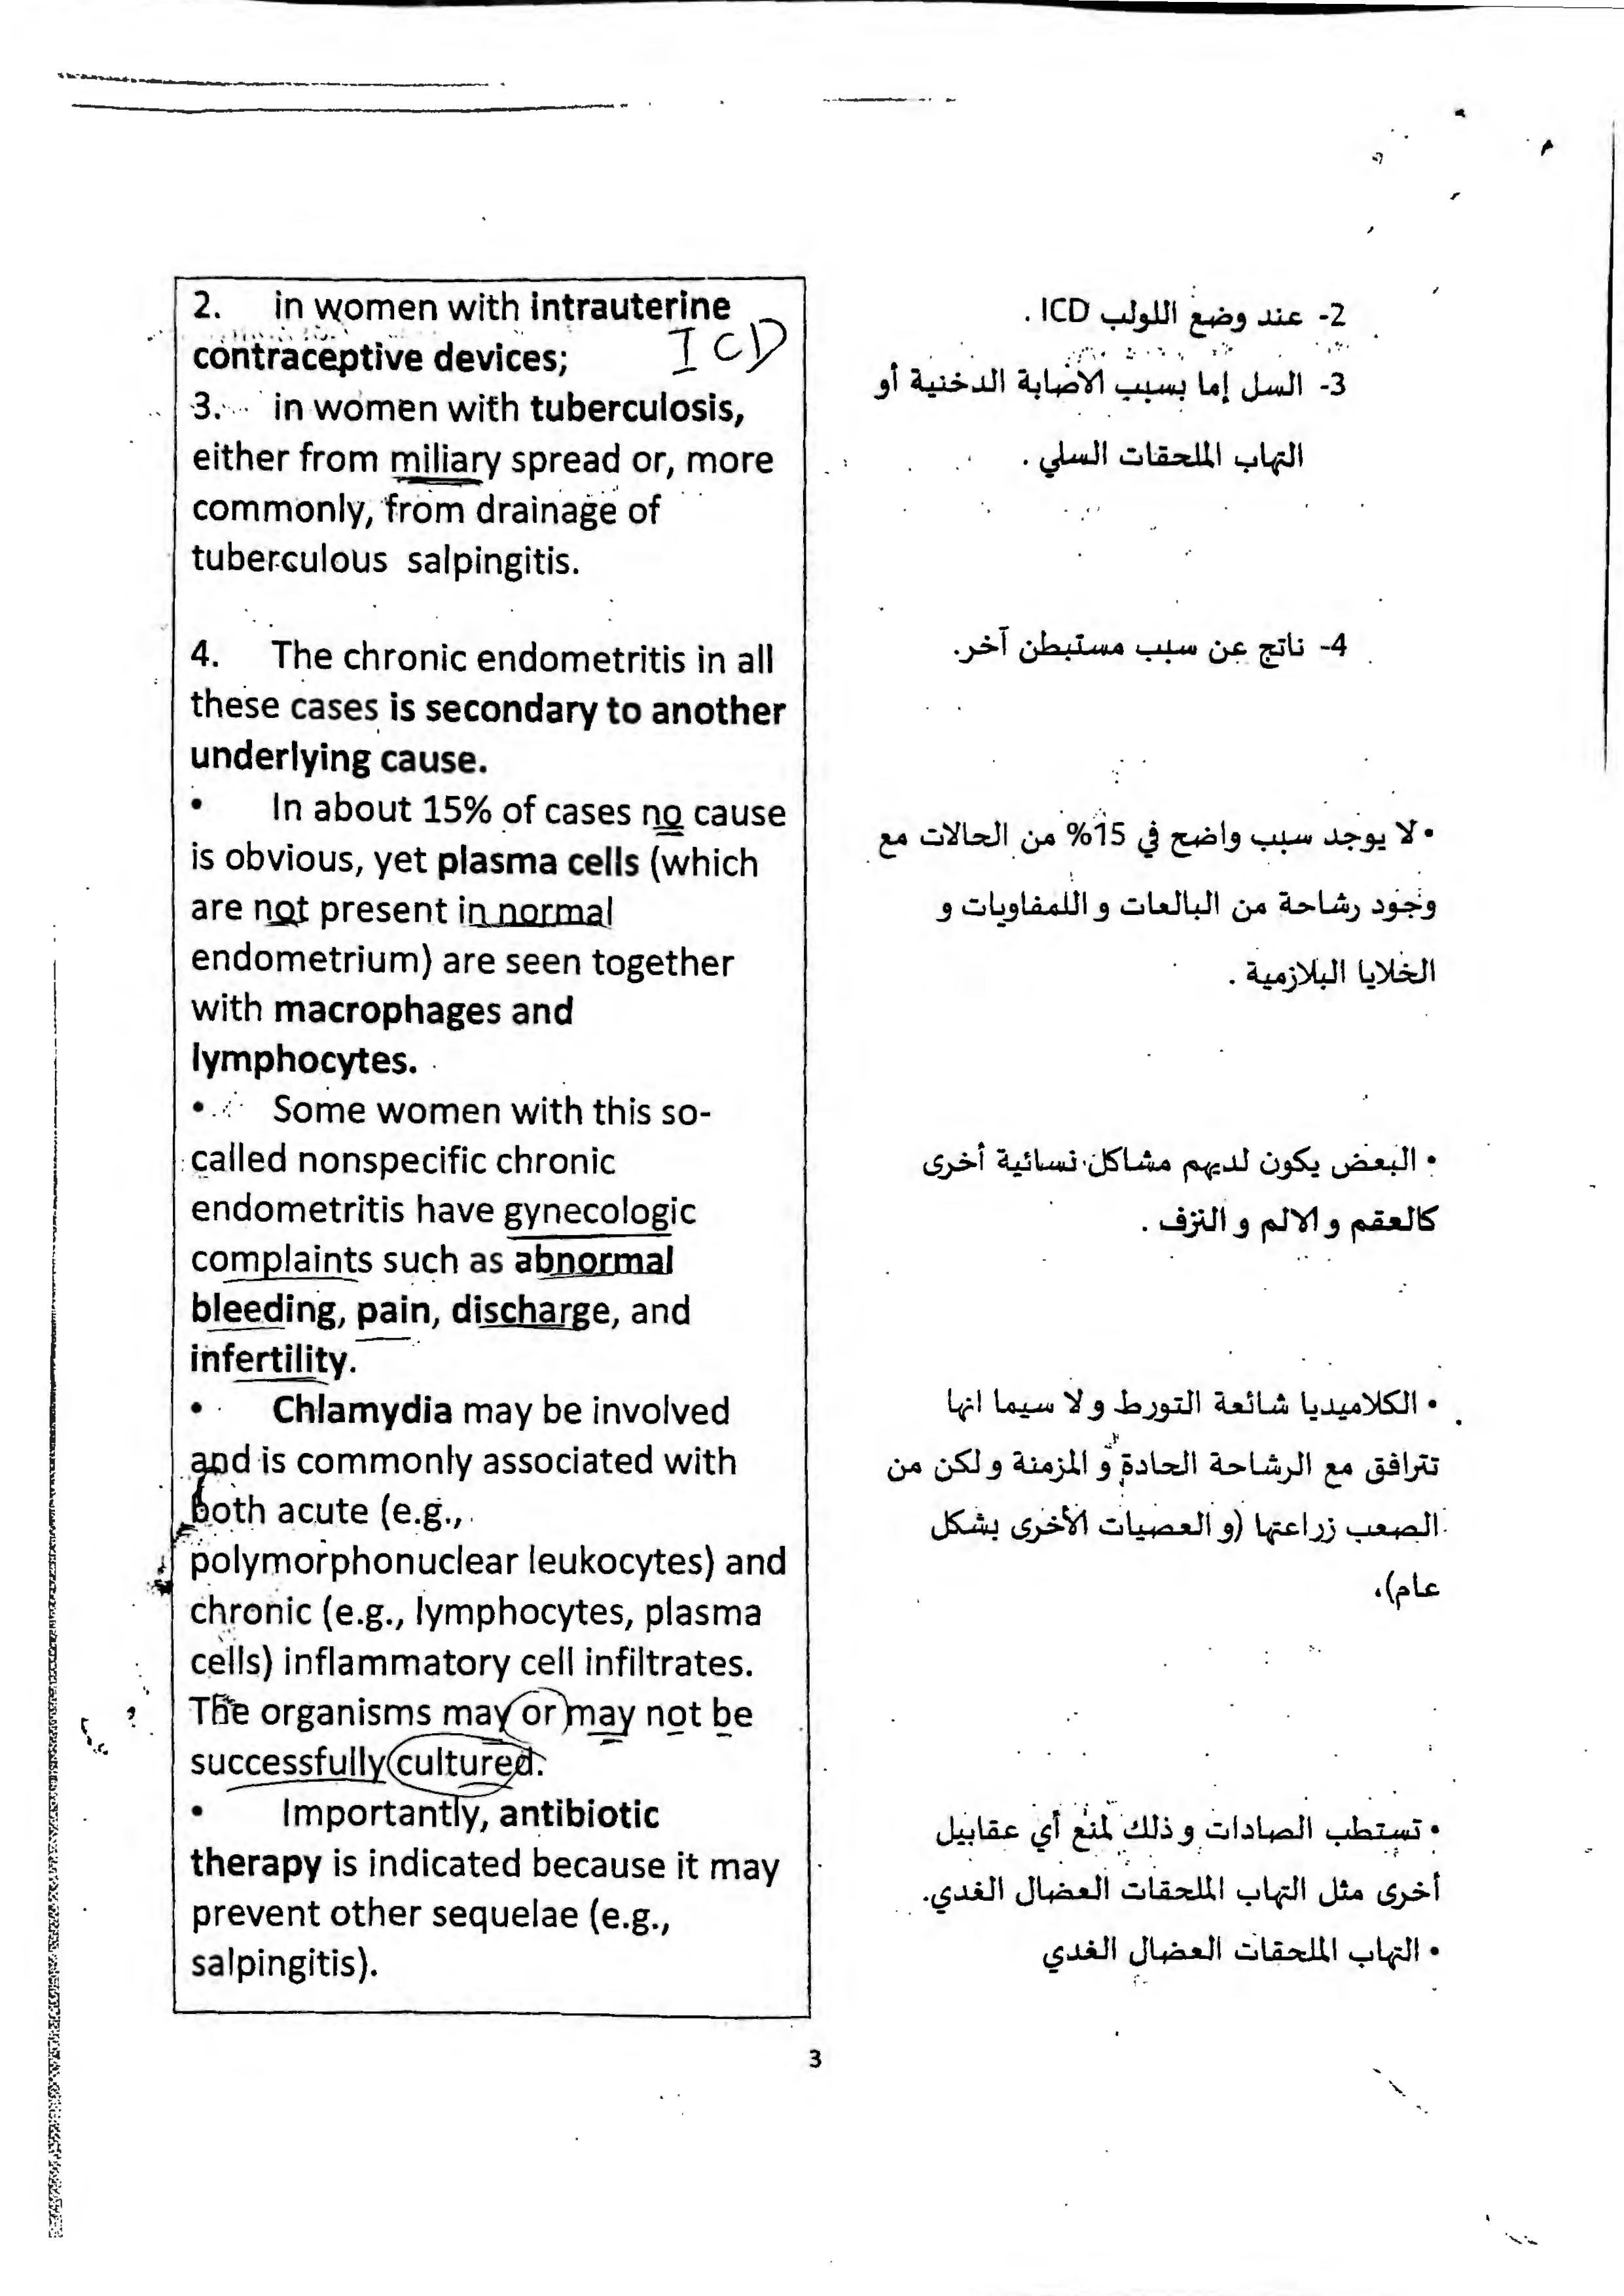 2. in women with intrauterine
contraceptive devices;
ICD
3. in women with tuberculosis,
either from miliary spread or, more
commonly, from drainage of
tuberculous salpingitis.
4. The chronic endometritis in all
these cases is secondary to another
underlying cause.
• In about 15% of cases no cause
is obvious, yet plasma cells (which
are not present in normal
endometrium) are seen together
with macrophages and
lymphocytes.
• Some women with this so-
called nonspecific chronic
endometritis have gynecologic
complaints such as abnormal
bleeding, pain, discharge, and
infertility.
• Chlamydia may be involved
and is commonly associated with
both acute (e.g.,
polymorphonuclear leukocytes) and
chronic (e.g., lymphocytes, plasma
cells) inflammatory cell infiltrates.
The organisms may or may not be
successfully cultured.
• Importantly, antibiotic
therapy is indicated because it may
prevent other sequelae (e.g.,
salpingitis).
2- عند وضع اللولب ICD .
3- السل إما بسبب الاصابة الدخنية أو
التهاب الملحقات السلي .
4- ناتج عن سبب مستبطن آخر.
• لا يوجد سبب واضح في 15% من الحالات مع
وجود رشاحة من البالعات و اللمفاويات و
الخلايا البلازمية .
• البعض يكون لديهم مشاكل نسائية أخرى
كالعقم و الالم و النزف .
• الكلاميديا شائعة التورط و لا سيما انها
تترافق مع الرشاحة الحادة و المزمنة و لكن من
الصعب زراعتها (و العصيات الأخرى بشكل
عام).
• تستطب الصادات و ذلك لمنع أي عقابيل
أخرى مثل التهاب الملحقات العضال الغدي.
• التهاب الملحقات العضال الغدي
3